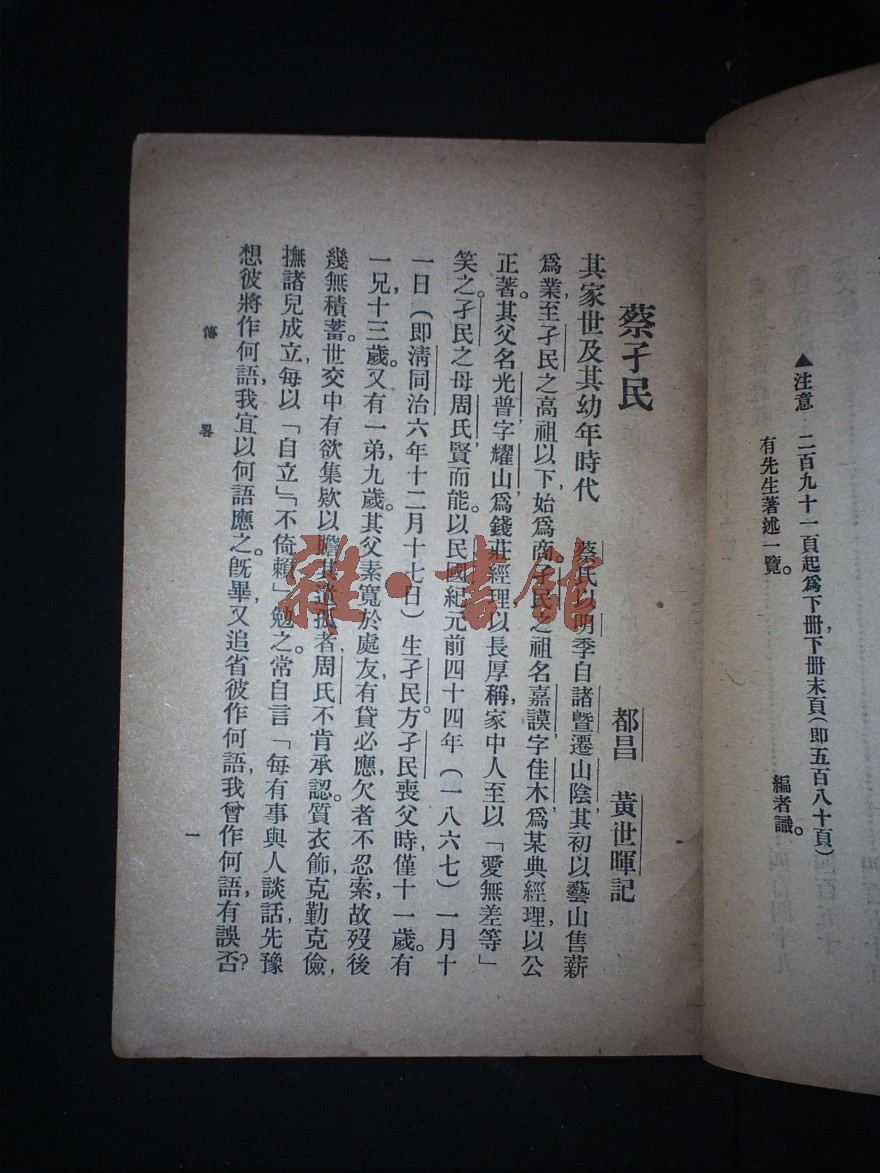 ▲注意　二百九十一頁起爲下册，下册末頁(即五百八十頁)
有先生著述一覽。
編者識。
蔡孑民
都昌　黃世暉記
其家世及其幼年時代　蔡氏以明季自諸暨遷山陰，其初以藝山售薪
爲業，至孑民之高祖以下，始爲商。孑民之祖名嘉謨，字佳木，爲某典經理，以公
正著。其父名光普，字耀山，爲錢莊經理，以長厚稱，家中人至以「愛無差等」
笑之。孑民之母周氏，賢而能。以民國紀元前四十四年(一八六七)一月十
一日(即淸同治六年十二月十七日)生孑民。方孑民喪父時，僅十一歲。有
一兄，十三歲。又有一弟，九歲。其父素寬於處友，有貸必應，欠者不忍索，故歿後
幾無積蓄。世交中有欲集欵以贍其遺孤者，周氏不肯承認。質衣飾，克勤克儉，
撫諸兒成立，每以「自立」「不倚賴」勉之。常自言「每有事與人談話，先豫
想彼將作何語，我宜以何語應之。旣畢，又追省彼作何語，我曾作何語，有誤否？
傳畧
一
雜·書館